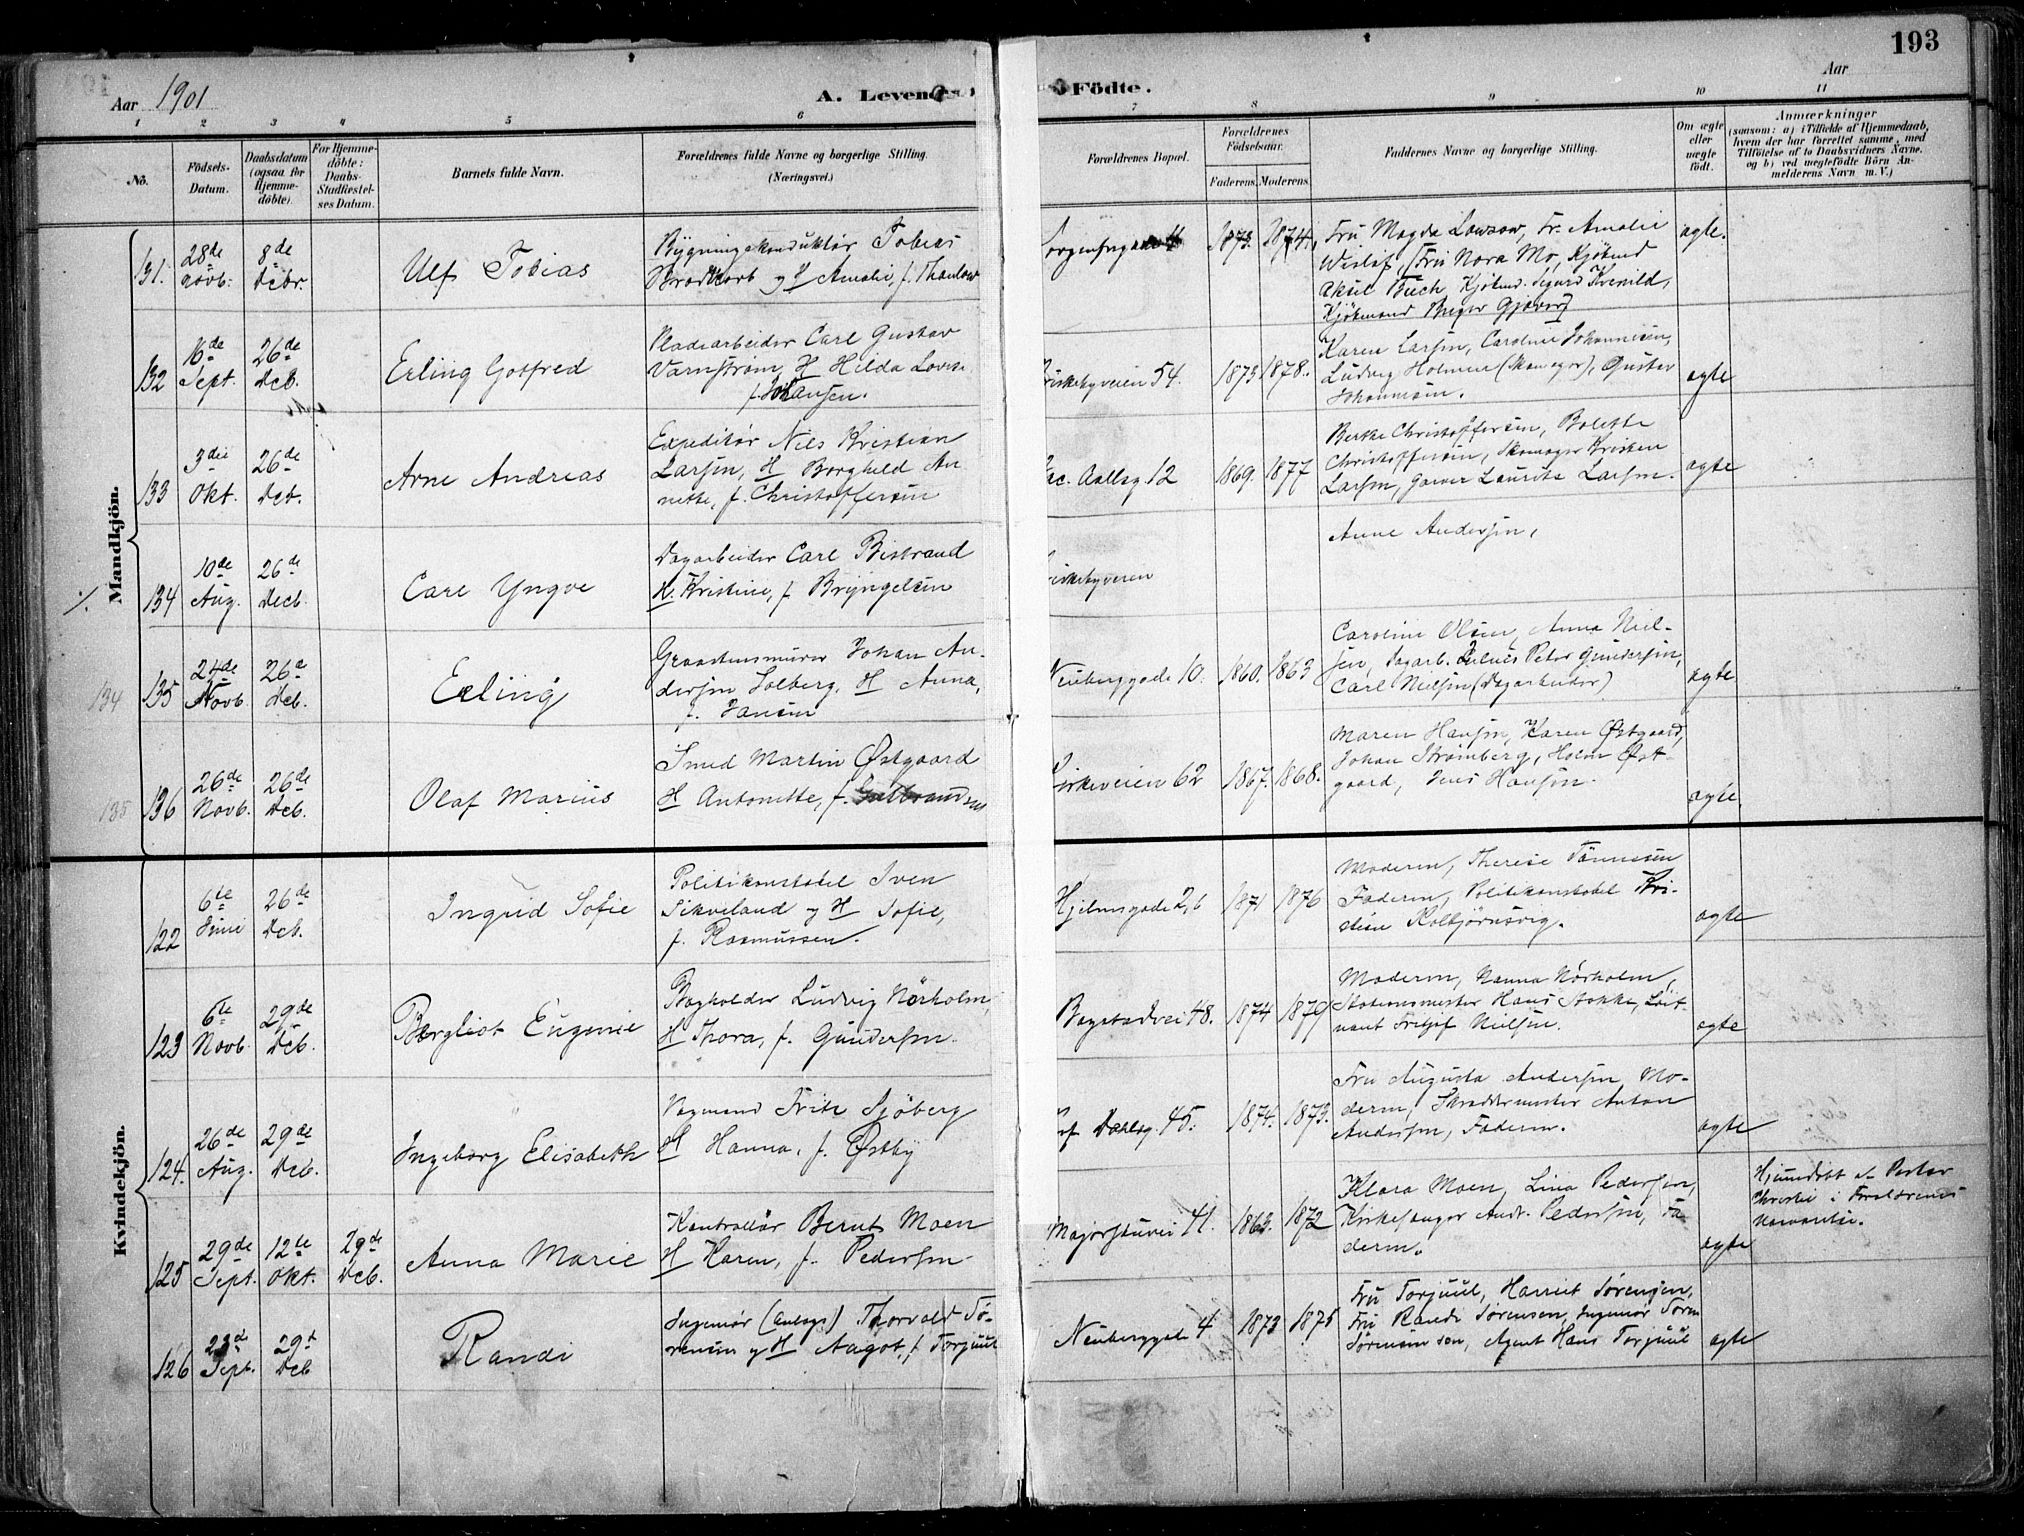 193
Aar 1901
A. Levende
Födte.
Aar
1 2 3 4 5 6 7 8 9 10 11
Nö.
Födsels-
Datum.
Daabsdatum
(ogsaa for
Hjemme-
döbte).
For Hjemme-
döbte:
Daabs-
Stadfæstel-
ses Datum.
Barnets fulde Navn.
Forældrenes fulde Navne og borgerlige Stilling.
(Næringsvei.)
Forældrenes Bopæl.
Forældrenes
Födselsaar.
Faderens. Moderens.
Faddernes Navne og borgerlige Stilling.
Om ægte
eller
uægte
födt.
Anmærkninger
(saasom: a) i Tilfælde af Hjemmedaab,
hvem der har forrettet samme, med
Tilföielse af to Daabsvidners Navne.
og b) ved uægtefödte Börn An-
melderens Navn m. V.)
Mandkjön.
131. 28de Novb. 8de Decbr. Ulf Tobias
Bygningskonduktør Tobias
og H Amalie, f. Thaulow
1873. 1874.
Fru Magda Lowzow, Fr. Amalie
Fru Nora Mo, Kjøbmd
Aksel Kjøbmd. Sigurd Kvenild,
Kjøbmand Birger Gjæver
ægte.
132 16de Sept. 26de Dcb. Erling Gotfred
Pladearbeider Carl Gustav
Varnstrøm, H Hilda Lovise
f. Johansen.
riskebyveien 54. 1873 1878.
Karen Larsen, Caroline Johannesen,
Ludvig Holmen (Skomager), Gustav
Johannesen.
ægte
133 3die Okt. 26de Dcb. Arne Andreas
Expeditør Nils Kristian
Larsen, H Borghild An-
nette, f. Christoffersen
ac. Aallsg 12 1869. 1877
Berthe Christoffersen, Bolette
Christoffersen, Skomager Kristen
Larsen, Garver Laurits Larsen.
ægte
./. 134 10de Aug. 26de Decb. Carl Yngve
Dagarbeider Carl Bistrand
H. Kristine, f. Bryngelsen
riskebyveien
Anne Andersen,
134 135 24de Novb. 26d Dcb. Erling
Graastensmurer Johan An-
dersen Solberg, H Anna,
f. Jansen
Neuberggade 10. 1860. 1863
Caroline Olsen, Anna Niel-
sen, Dagarb. Julius Peter Gundersen,
Carl Nielsen (Dagarbeider)
ægte
135 136 26de Novb. 26de Dcb. Olaf Marius
Smed Martin Østgaard
H Antonette, f. Gulbrandsen
irkeveien 62 1867. 1868.
Maren Hansen, Karen Østgaard,
Johan Strømberg, Holm Øst-
gaard, Jens Hansen.
ægte
Kvindekjön.
122 6te Juni 26de Dcb. Ingrid Sofie
Politikonstabel Iven
Sikveland og H Sofie,
f. Rasmussen.
Hjelmsgade 2, b 1871 1876
Moderen, Therese Tønnessen
Faderen, Politikonstabel Kri-
stian Kolbjørnsvig.
ægte
123 6te Novb. 29de Dcb. Bergliot Eugenie
Bogholder Ludvig Nørholm,
H Thora, f. Gundersen.
Bogstadvei 48. 1874 1879
Moderen, Nanna Nørholm,
Stationsmester Hans Stokke, Løit-
nant Fritjof Nielsen.
ægte
124. 26de Aug. 29de Dcb. Ingeborg Elisabeth
Vogmand Fritz Sjöberg
H Hanna, f. Østby
Daalsg. 45. 1874. 1873.
Fru Augusta Andersen, Mo-
deren, Skreddermester Anton
Andersen, Faderen.
ægte
125 29de Sept. 12te Okt. 29de Dcb. Anna Marie
Kontrollør Bernt Moen
H Karen, f. Pedersen
Majorstuvei 41. 1863. 1872
Klara Moen, Lina Pedersen,
Kirkesanger Andr. Pedersen, Fa-
deren.
ægte
Hjemmedøbt af Pastor
Christie i Forældrenes
Nærværelse.
126 23d Sept. 29d Dcb Randi
Ingeniør (Anlægs) Thorvald Sø-
rensen og H Aagot, f. Torjuul
Neuberggade 4. 1873 1875
Fru Torjuul, Harriet Sørensen,
Fru Randi Sørensen, Ingeniør Søren
Sørensen, Agent Hans Torjuul
ægte